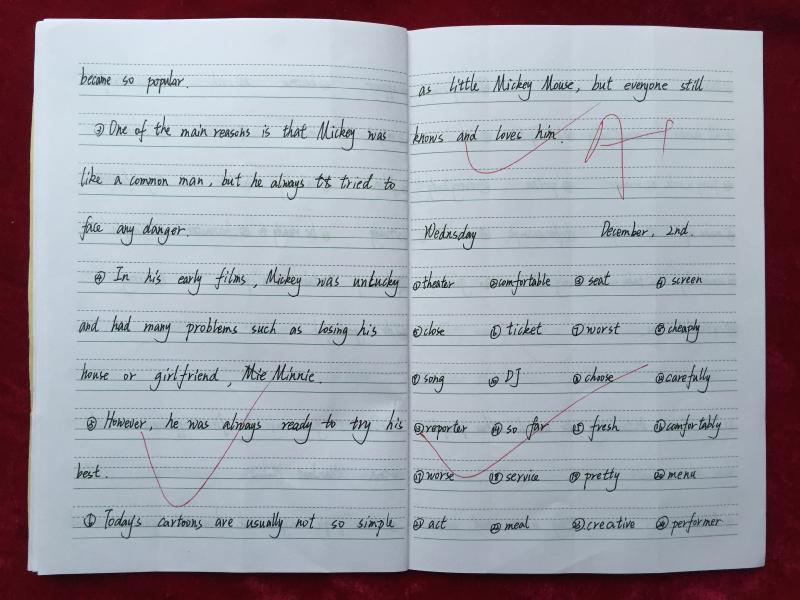 became so popular.
③ One of the main reasons is that Mickey was
like a common man, but he always tried to
face any danger.
④ In his early films, Mickey was unlucky
and had many problems such as losing his
house or girlfriend, Minnie.
⑤ However, he was always ready to try his
best.
⑥ Today's cartoons are usually not so simple
as little Mickey Mouse, but everyone still
knows and loves him.
A+
Wednsday December, 2nd.
①theater ②comfortable ③seat ④screen
⑤close ⑥ticket ⑦worst ⑧cheaply
⑨song ⑩DJ ⑪choose ⑫carefully
⑬reporter ⑭so far ⑮fresh ⑯comfortably
⑰worse ⑱service ⑲pretty ⑳menu
㉑act ㉒meal ㉓creative ㉔performer